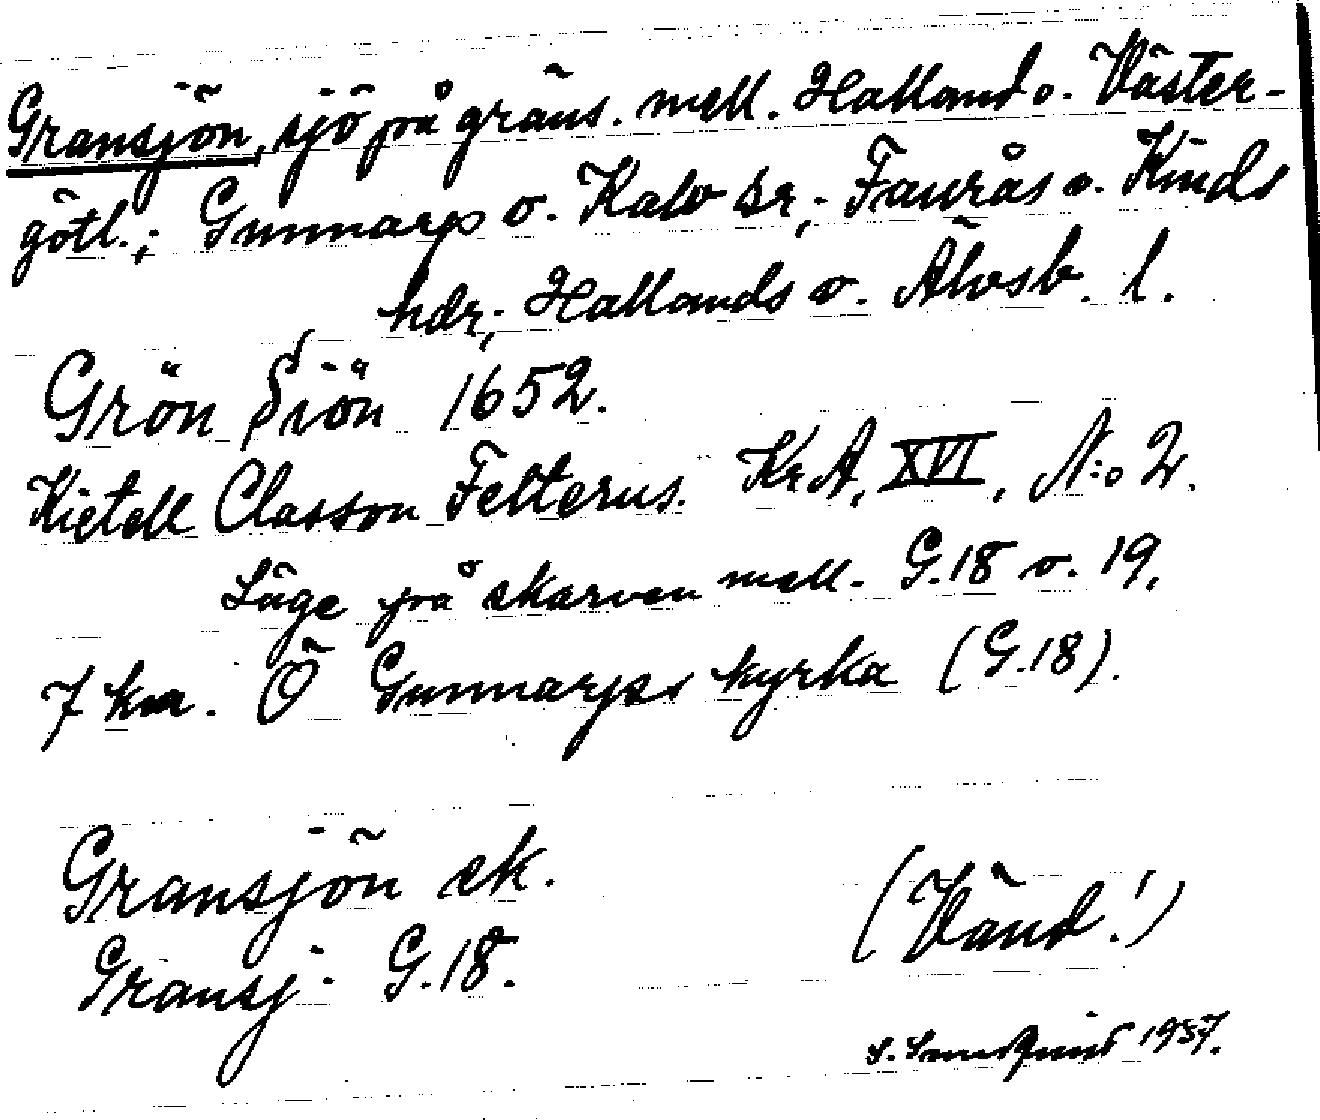 Gransjön, sjö på gräns. mell. Halland o. Väster-
götl.; Gunnarps o. Kalv sr; Faurås o. Kinds
hdr; Hallands o. Älvsb. l.
Grön Siön 1652.
Kietell Classon Felterus. KrA, XVI, N:o 2.
Läge på skarven mell. G.18 o. 19.
7 km. Ö Gunnarps kyrka (G.18).
Gransjön ek.
Gransj. G.18.
(Vänd!)
S. 1957.